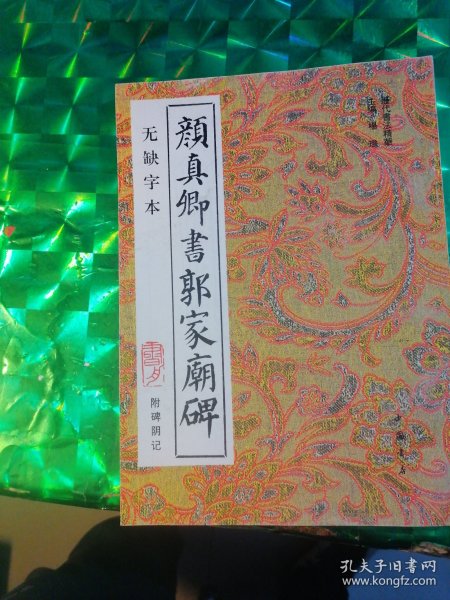 顔真卿書郭家廟碑
无缺字本
附碑阴记
中国书店
孔夫子旧书网
www.kongfz.com